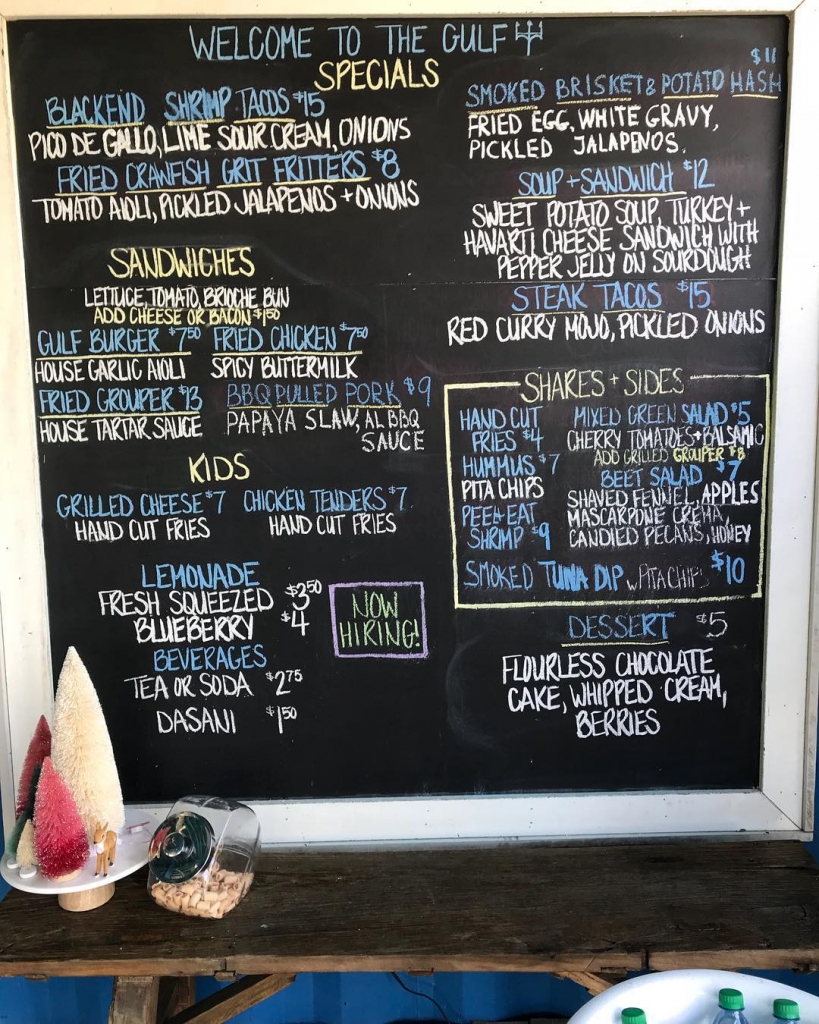 WELCOME TO THE GULF
SPECIALS
BLACKEND SHRIMP TACOS $15
PICO DE GALLO, LIME SOUR CREAM, ONIONS
FRIED CRAWFISH GRIT FRITTERS $8
TOMATO AIOLI, PICKLED JALAPENOS + ONIONS
SMOKED BRISKET & POTATO HASH $11
FRIED EGG, WHITE GRAVY,
PICKLED JALAPENOS.
SOUP + SANDWICH $12
SWEET POTATO SOUP, TURKEY +
HAVARTI CHEESE SANDWICH WITH
PEPPER JELLY ON SOURDOUGH
STEAK TACOS $15
RED CURRY MOJO, PICKLED ONIONS
SANDWICHES
LETTUCE, TOMATO, BRIOCHE BUN
ADD CHEESE OR BACON $1.50
GULF BURGER $7.50
HOUSE GARLIC AIOLI
FRIED CHICKEN $7.50
SPICY BUTTERMILK
FRIED GROUPER $13
HOUSE TARTAR SAUCE
BBQ PULLED PORK $9
PAPAYA SLAW, AL BBQ
SAUCE
KIDS
GRILLED CHEESE $7
HAND CUT FRIES
CHICKEN TENDERS $7
HAND CUT FRIES
LEMONADE
FRESH SQUEEZED $3.50
BLUEBERRY $4
BEVERAGES
TEA OR SODA $2.75
DASANI $1.50
NOW
HIRING!
SHARES + SIDES
HAND CUT
FRIES $4
HUMMUS $7
PITA CHIPS
PEEL + EAT
SHRIMP $9
MIXED GREEN SALAD $5
CHERRY TOMATOES + BALSAMIC
ADD GRILLED GROUPER $8
BEET SALAD $7
SHAVED FENNEL, APPLES
MASCARPONE CREMA,
CANDIED PECANS, HONEY
SMOKED TUNA DIP w/ PITA CHIPS $10
DESSERT $5
FLOURLESS CHOCOLATE
CAKE, WHIPPED CREAM,
BERRIES